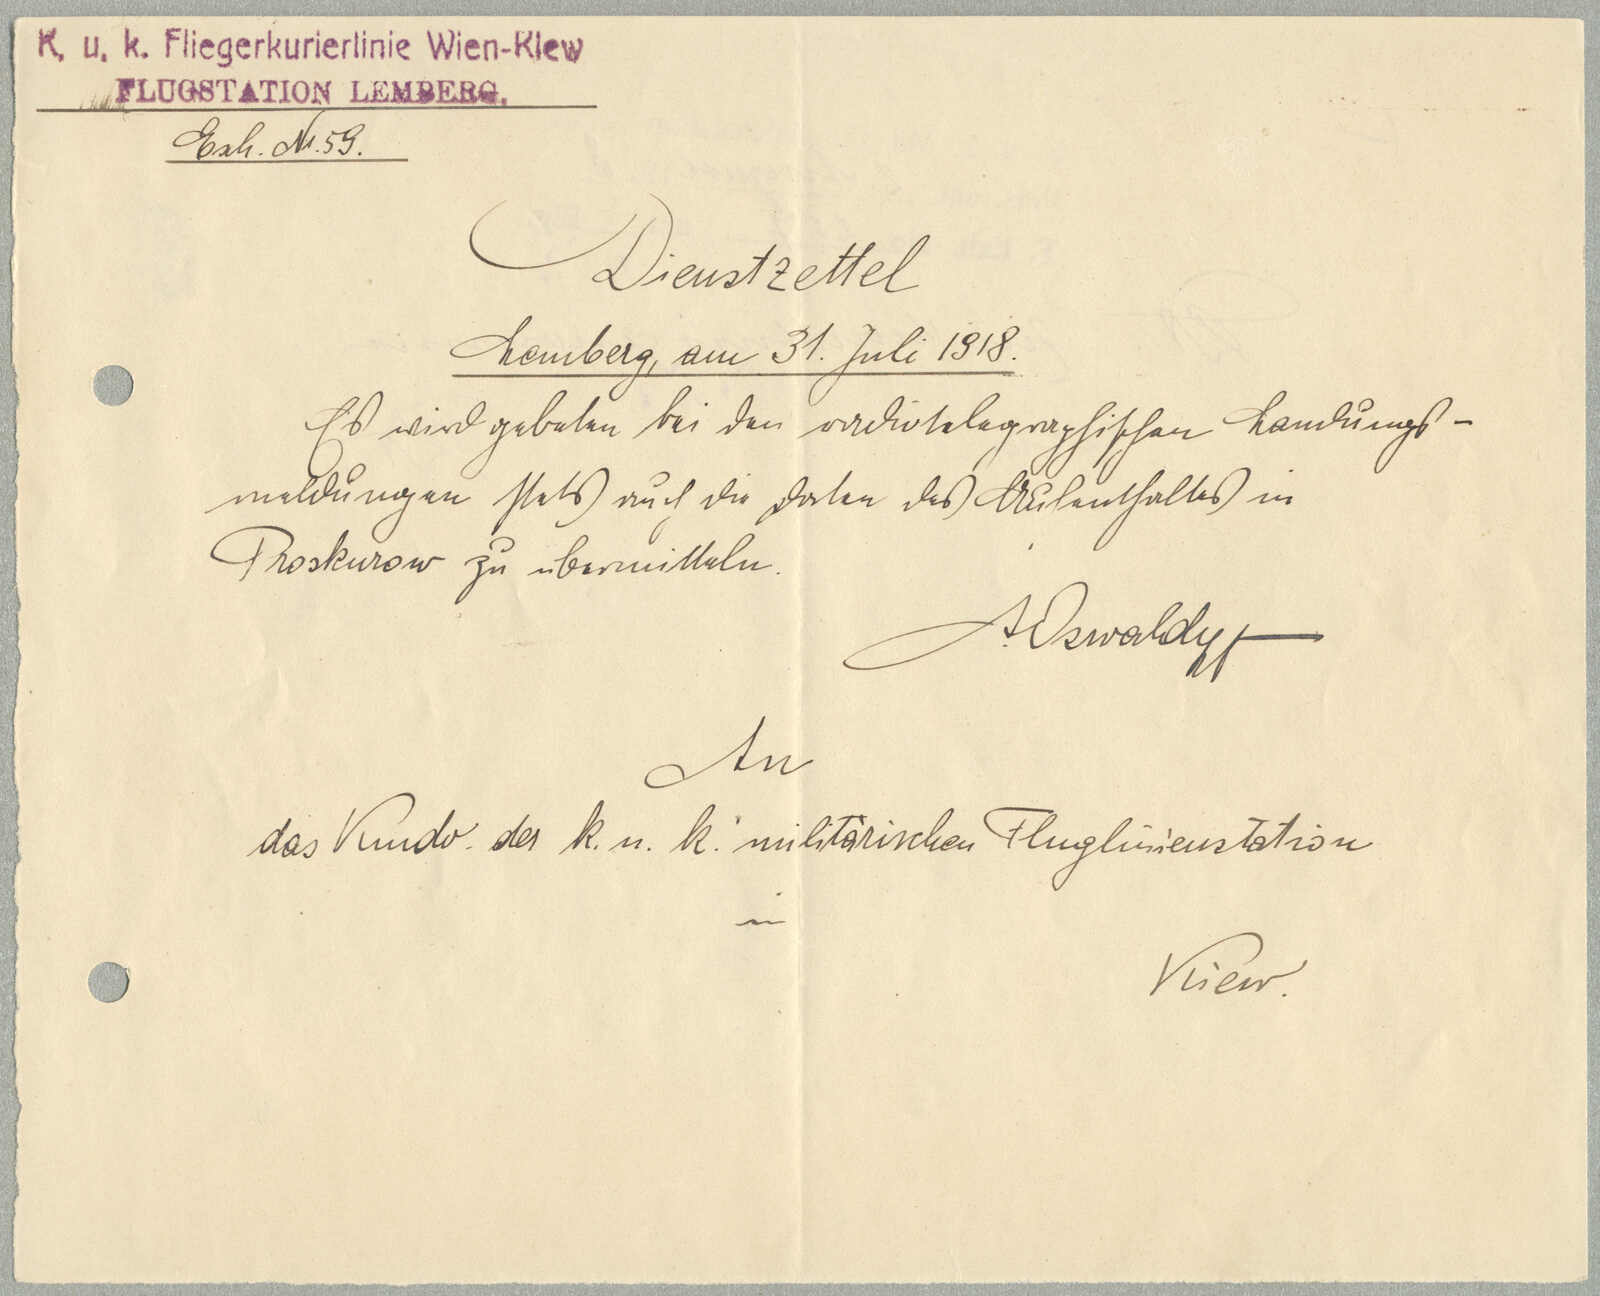 K. u. k. Fliegerkurierlinie Wien-Kiew
FLUGSTATION LEMBERG.
Exh. Nr. 59.
Dienstzettel
Lemberg, am 31. Juli 1918.
Es wird gebeten bei den radiotelegraphischen Landungs-
meldungen stets auch die Daten des Aufenthaltes in
Proskurow zu übermitteln.
A. Oswald
An
das Kmdo. der k. u. k. militärischen Fluglinienstation
in
Kiew.